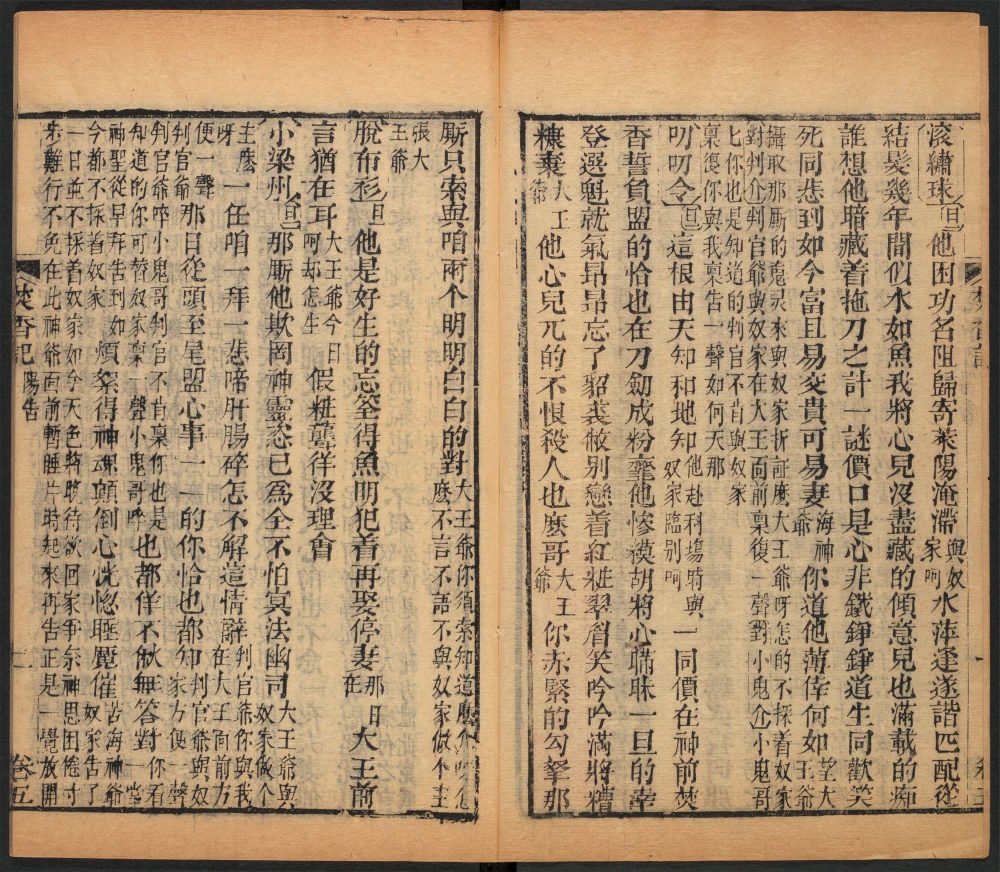 滚繡球〔旦〕他困功名阻歸寄萊陽淹滯與奴家呵水萍逢遂諧匹配從
結髮幾年間似水如魚我將心兒沒盡藏的傾意兒也滿載的痴
誰想他暗藏着拖刀之計一謎價口是心非鐵錚錚道生同歡笑
死同悲到如今富且易交貴可易妻海神爺你道他薄倖何如望大王爺
攝取那厮的䰟灵來與奴家折証麽大王爺呀怎的不採着奴家
對判介判官爺與奴家在大王面前稟復一聲對小鬼介小鬼哥
匕你也是知道的判官不肯與奴家
稟復你與我稟告一聲如何天那
叨叨令〔旦〕這根由天知和地知他赴科塲時與奴家臨别呵一同價在神前焚
香誓負盟的恰也在刀劎成粉虀他慘模胡將心瞞昧一旦的幸
登選魁就氣昂昂忘了貂裘敝别戀着紅粧翠眉笑吟吟滿將糟
糠棄大王爺他心兒兀的不恨殺人也麽哥大王爺你赤緊的勾拏那
厮只索與咱兩个明明白白的對大王爺你須索知道麽
麽不言不語不與奴家做个主
張大
王爺
脫布衫〔旦〕他是好生的忘筌得魚明犯着再娶停妻那日大王前在
言猶在耳大王爺今日呵却怎生假粧聾徉沒理會
小梁州〔旦〕那厮他欺罔神靈恣己爲全不怕㝠法幽司大王爺與奴家做个
主麽呀一任咱一拜一悲啼肝腸碎怎不解這情辭判官爺你與我在大王面前方
便一聲判官爺那日從頭至尾盟心事一一的你恰也都知判官爺與奴家方便一聲
判官爺啐小鬼哥判官不肯稟你也是
知道的你可替奴家稟一聲小鬼哥呀也都佯不㑆無答對你看一堂
神聖從早拜告到如
今都不採着奴家煩絮得神䰟顛倒心恍惚睚魘催苦海神爺奴家告了
一日並不採着奴家如今天色將晚待欲回家爭奈神思困倦寸
步難行不免在此神爺面前暫睡片時起來再告正是一覺放開
焚香記
陽告
卷五